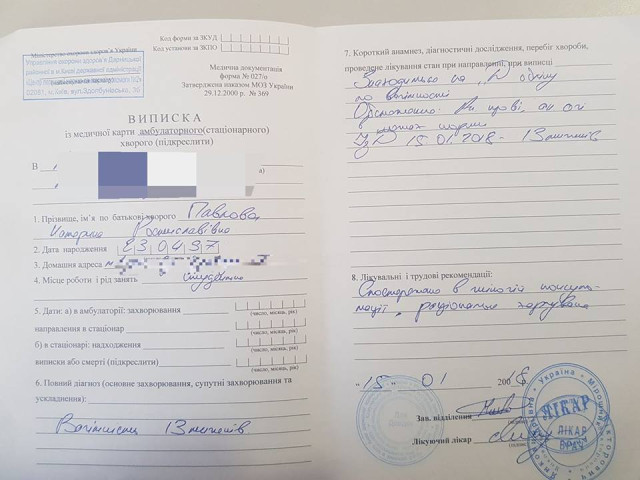 Код форми за ЗКУД
Код установи за ЗКПО
Міністерство охорони здоров'я України
Управління охорони здоров'я Дарницької
районної в м.Києві державної адміністрації
02081, м. Київ, вул.Здолбунівська,
Медична документація
форма № 027/о
Затверджена наказом МОЗ України
29.12.2000 р. № 369
ВИПИСКА
із медичної карти амбулаторного(стаціонарного)
хворого (підкреслити)
В
1. Прізвище, ім'я по батькові хворого Павлова
Катерина Ростиславівна
2. Дата народження 230497
3. Домашня адреса м.
4. Місце роботи і рід занять студентка
5. Дати: а) в амбулаторії: захворювання
(число, місяць, рік)
направлення в стаціонар
(число, місяць, рік)
б) в стаціонарі: надходження
(число, місяць, рік)
виписки або смерті (підкреслити)
(число, місяць, рік)
6. Повний діагноз (основне захворювання, супутні захворювання та
ускладнення):
Вагітність 13 тижнів
7. Короткий анамнез, діагностичні дослідження, перебіг хвороби,
проведене лікування стан при направленні, при виписці
Знаходиться на "Д" обліку
по вагітності
в межах норми
УзД 15.01.2018 - 13 тижнів
8. Лікувальні і трудові рекомендації:
Спостереження в жіночій консуль-
тації, раціональне харчування
"15" 01 2018
Зав. відділення
Лікуючий лікар
ЛІКАР
ЛІКАР
ВРАЧ
Україна